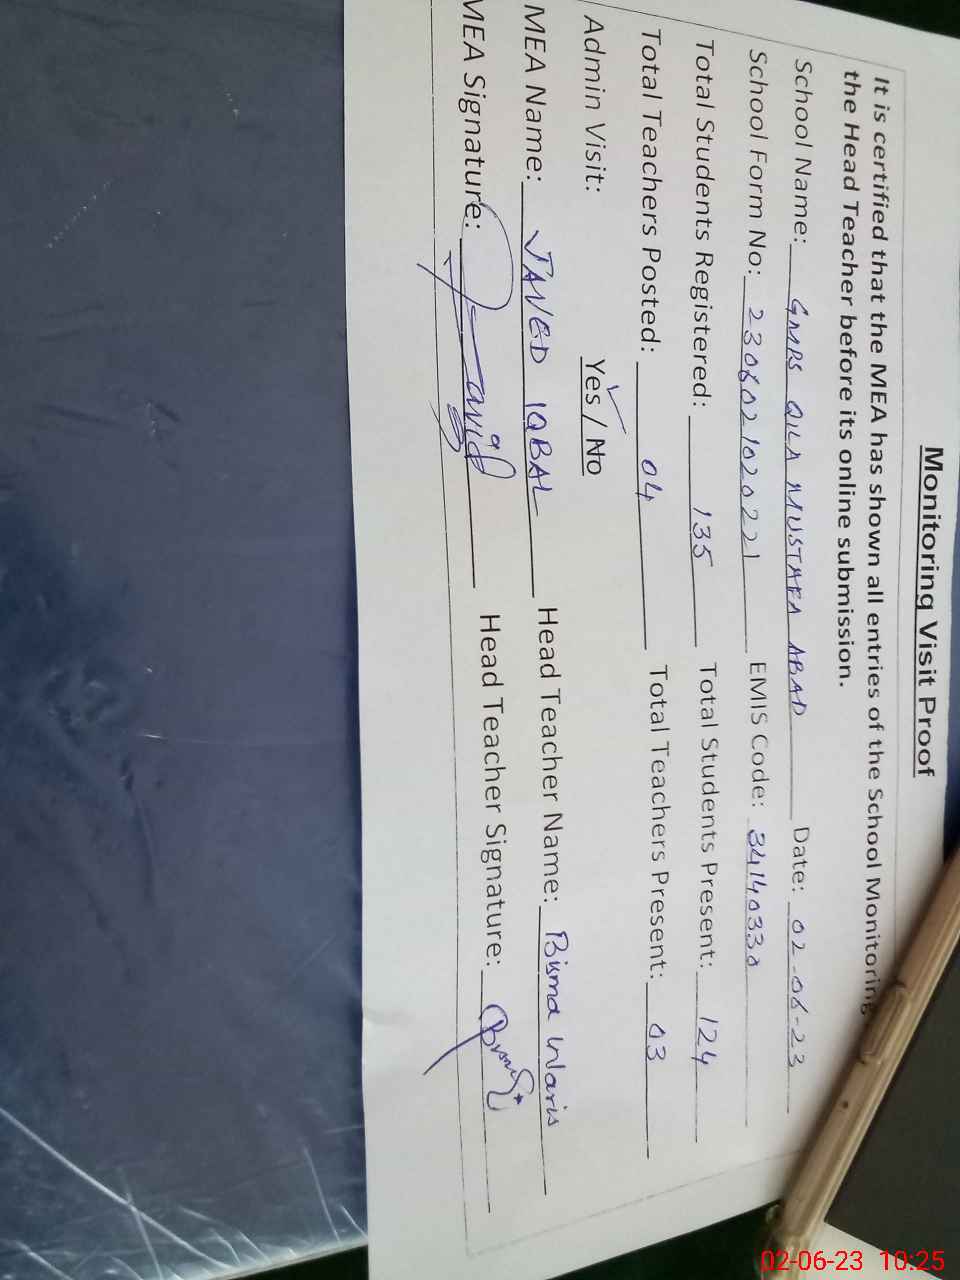 Monitoring Visit Proof
It is certified that the MEA has shown all entries of the School Monitoring
the Head Teacher before its online submission.
School Name: GMPS QILA MUSTAFA ABAD Date: 02-06-23
School Form No: 2306021020221 EMIS Code: 34140330
Total Students Registered: 135 Total Students Present: 124
Total Teachers Posted: 04 Total Teachers Present: 03
Admin Visit: Yes / No
MEA Name: JAVED IQBAL Head Teacher Name: Bisma Waris
MEA Signature: Javid Head Teacher Signature:
02-06-23 10:25